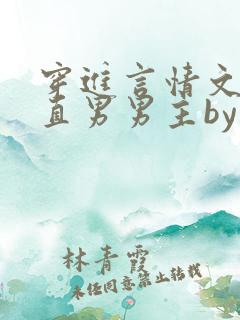 穿进言情文
直男男主by
林青霞
未经同意禁止转载